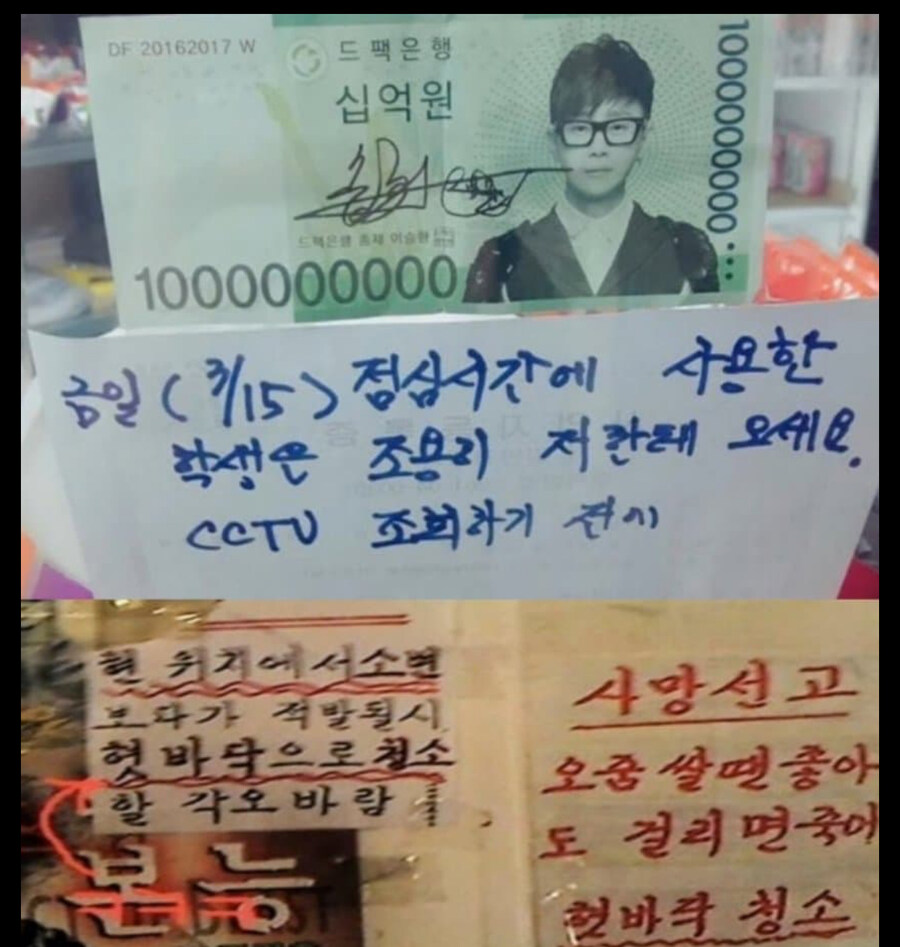 DF 20162017 W
드팩은행
십억원
1000000000
드팩은행 총재 이승현
1000000000
금일 (3/15) 점심시간에 사용한
학생은 조용히 저한테 오세요.
CCTV 조회하기 전에
현 위치에서소변
보다가 적발될시
혓바닥으로청소
할 각오바람
본능
사망선고
오줌쌀땐좋아
도 걸리면죽어
혓바닥 청소